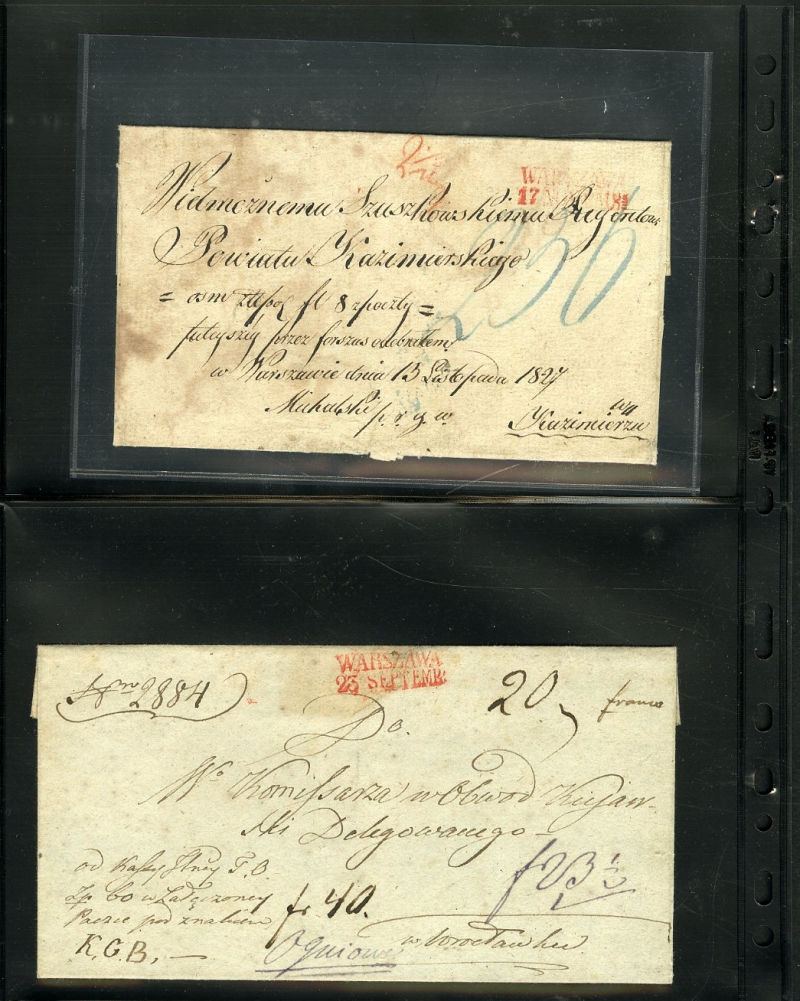 WARSZAWA
17
Wielmożnemu Szuszkowskiemu
Powiatu Kazimierskiego
= osm złłpol fl 8 zpoczty =
tuteyszey przez forszus odebrałem
w Warszawie dnia 13 Listopada 1827
Michalski
w
Kazimierzu
236
WARSZAWA
23 SEPTEMB:
Nro 2884
20
franco
Do.
Wo Komissarza w Obwod Kujaw-
ski Delegowanego
od Kassy
Zp 60 w Załączoney
Paczce pod znakiem
K.G.B.
fr 40.
Ogniowe
w Wrocławku